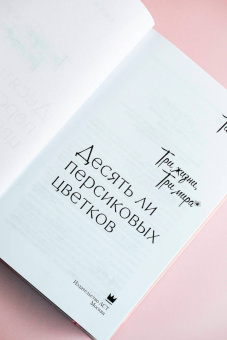 Три жизни,
Три мира*
Десять ли
персиковых
цветков
Издательство АСТ
Москва